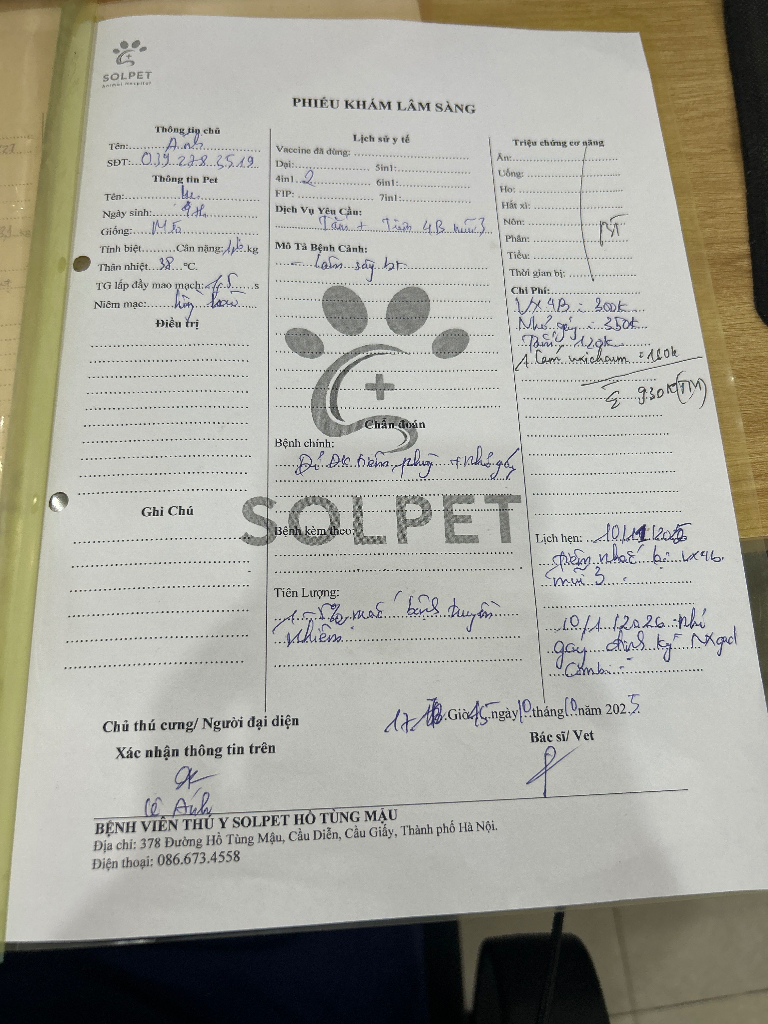 SOLPET
Animal Hospital
PHIẾU KHÁM LÂM SÀNG
Thông tin chủ
Tên: Ánh
SĐT: 039 278 3519
Thông tin Pet
Tên:
Ngày sinh: 9th
Giống: Mèo
Tính biệt Cân nặng: kg
Thân nhiệt 38 °C.
TG lấp đầy mao mạch: 1,5 s
Niêm mạc: hồng hào
Điều trị
Ghi Chú
Lịch sử y tế
Vaccine đã dùng:
Dại: 5in1:
4in1 2 6in1:
FIP: 7in1:
Dịch Vụ Yêu Cầu:
Tắm + Tiêm 4B mũi 3
Mô Tả Bệnh Cảnh:
- Lâm sàng bt
Chẩn đoán
Bệnh chính:
Đủ ĐK tiêm phòng + nhỏ gáy
SOLPET
Bệnh kèm theo:
Tiên Lượng:
1 - 5% mắc bệnh truyền
nhiễm
Triệu chứng cơ năng
Ăn:
Uống:
Ho:
Hắt xì:
Nôn:
Phân:
Tiểu:
Thời gian bị:
BT
Chi Phí:
VX 4B : 300k
Nhỏ gáy : 350k
Tắm : 120k
= 160k
Σ 930k (TM)
Lịch hẹn: 10/11/2025
tiêm nhắc lại VX4b
mũi 3
10/1/2026 nhỏ
gáy định kỳ Nxgad
Combi
Giờ 45 ngày 10 tháng 10 năm 2025
Chủ thú cưng/ Người đại diện
Xác nhận thông tin trên
Bác sĩ/ Vet
Lê Ánh
BỆNH VIỆN THÚ Y SOLPET HỒ TÙNG MẬU
Địa chỉ: 378 Đường Hồ Tùng Mậu, Cầu Diễn, Cầu Giấy, Thành phố Hà Nội.
Điện thoại: 086.673.4558